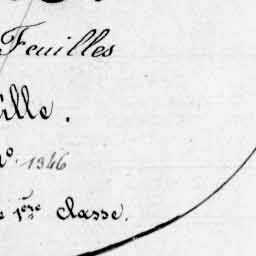 Feuilles
ille.
N° 1346
1ère classe.